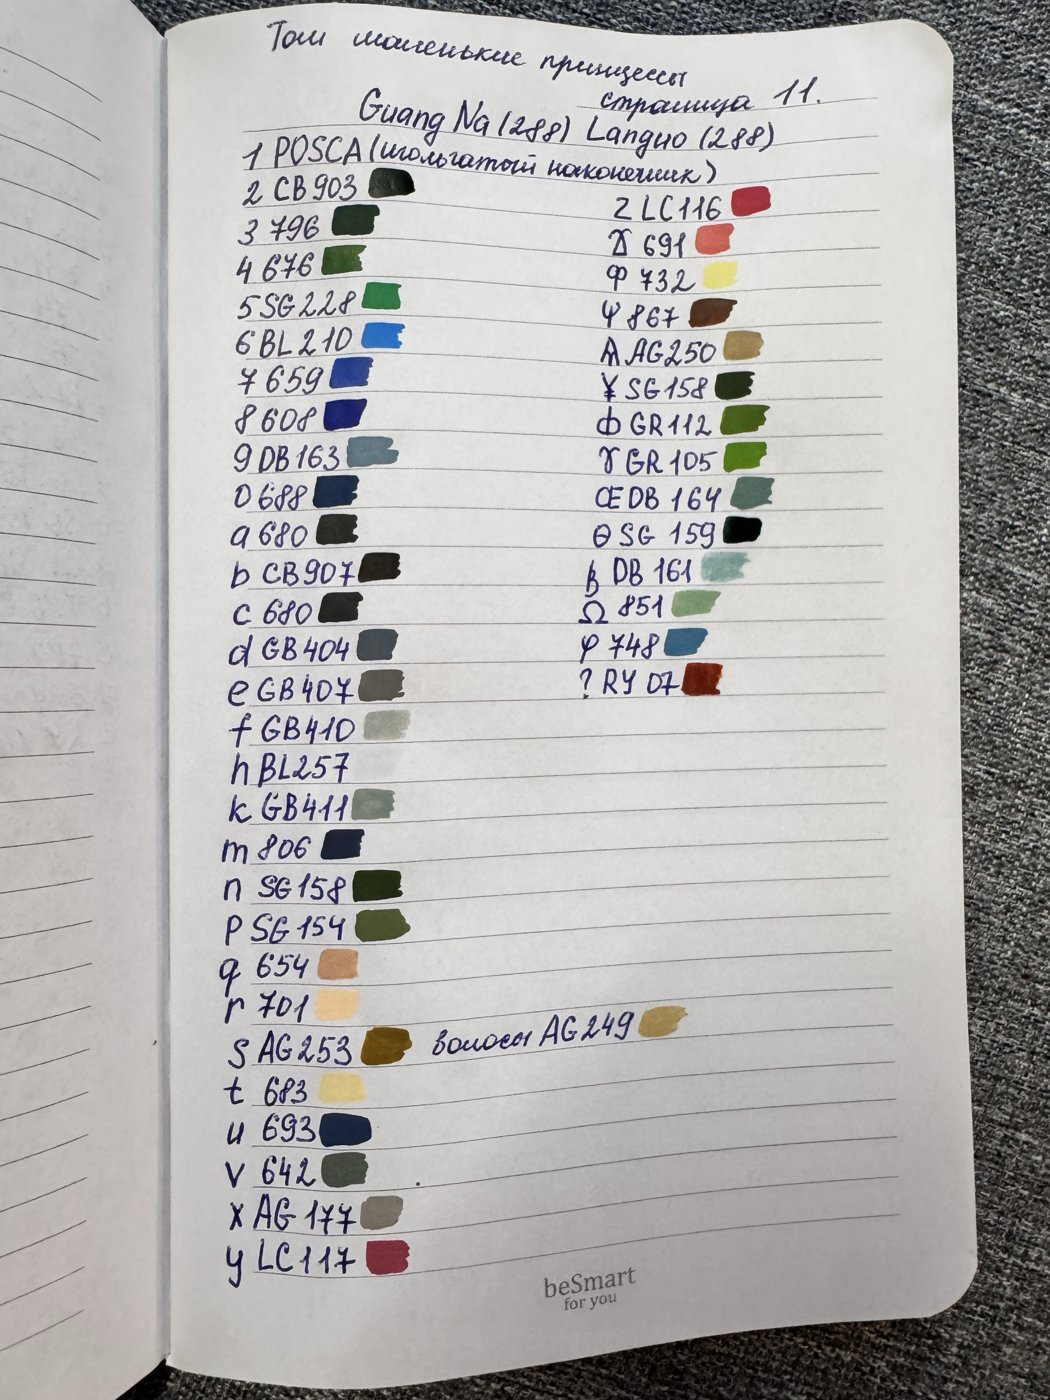 Том маленькие принцессы
страница 11.
Guang Na (288) Languo (288)
1 POSCA (игольчатый наконечник)
2 CB 903
3 796
4 676
5 SG 228
6 BL 210
7 659
8 608
9 DB 163
0 688
a 680
b CB 907
c 680
d GB 404
e GB 407
f GB 410
h BL 257
k GB 411
m 806
n SG 158
p SG 154
q 654
r 701
s AG 253 волосы AG 249
t 683
u 693
v 642
x AG 177
y LC 117
z LC 116
♉ 691
Ф 732
Ψ 867
A AG 250
¥ SG 158
ф GR 112
ɤ GR 105
Œ DB 164
Θ SG 159
β DB 161
Ω 851
φ 748
? RY 07
beSmart
for you